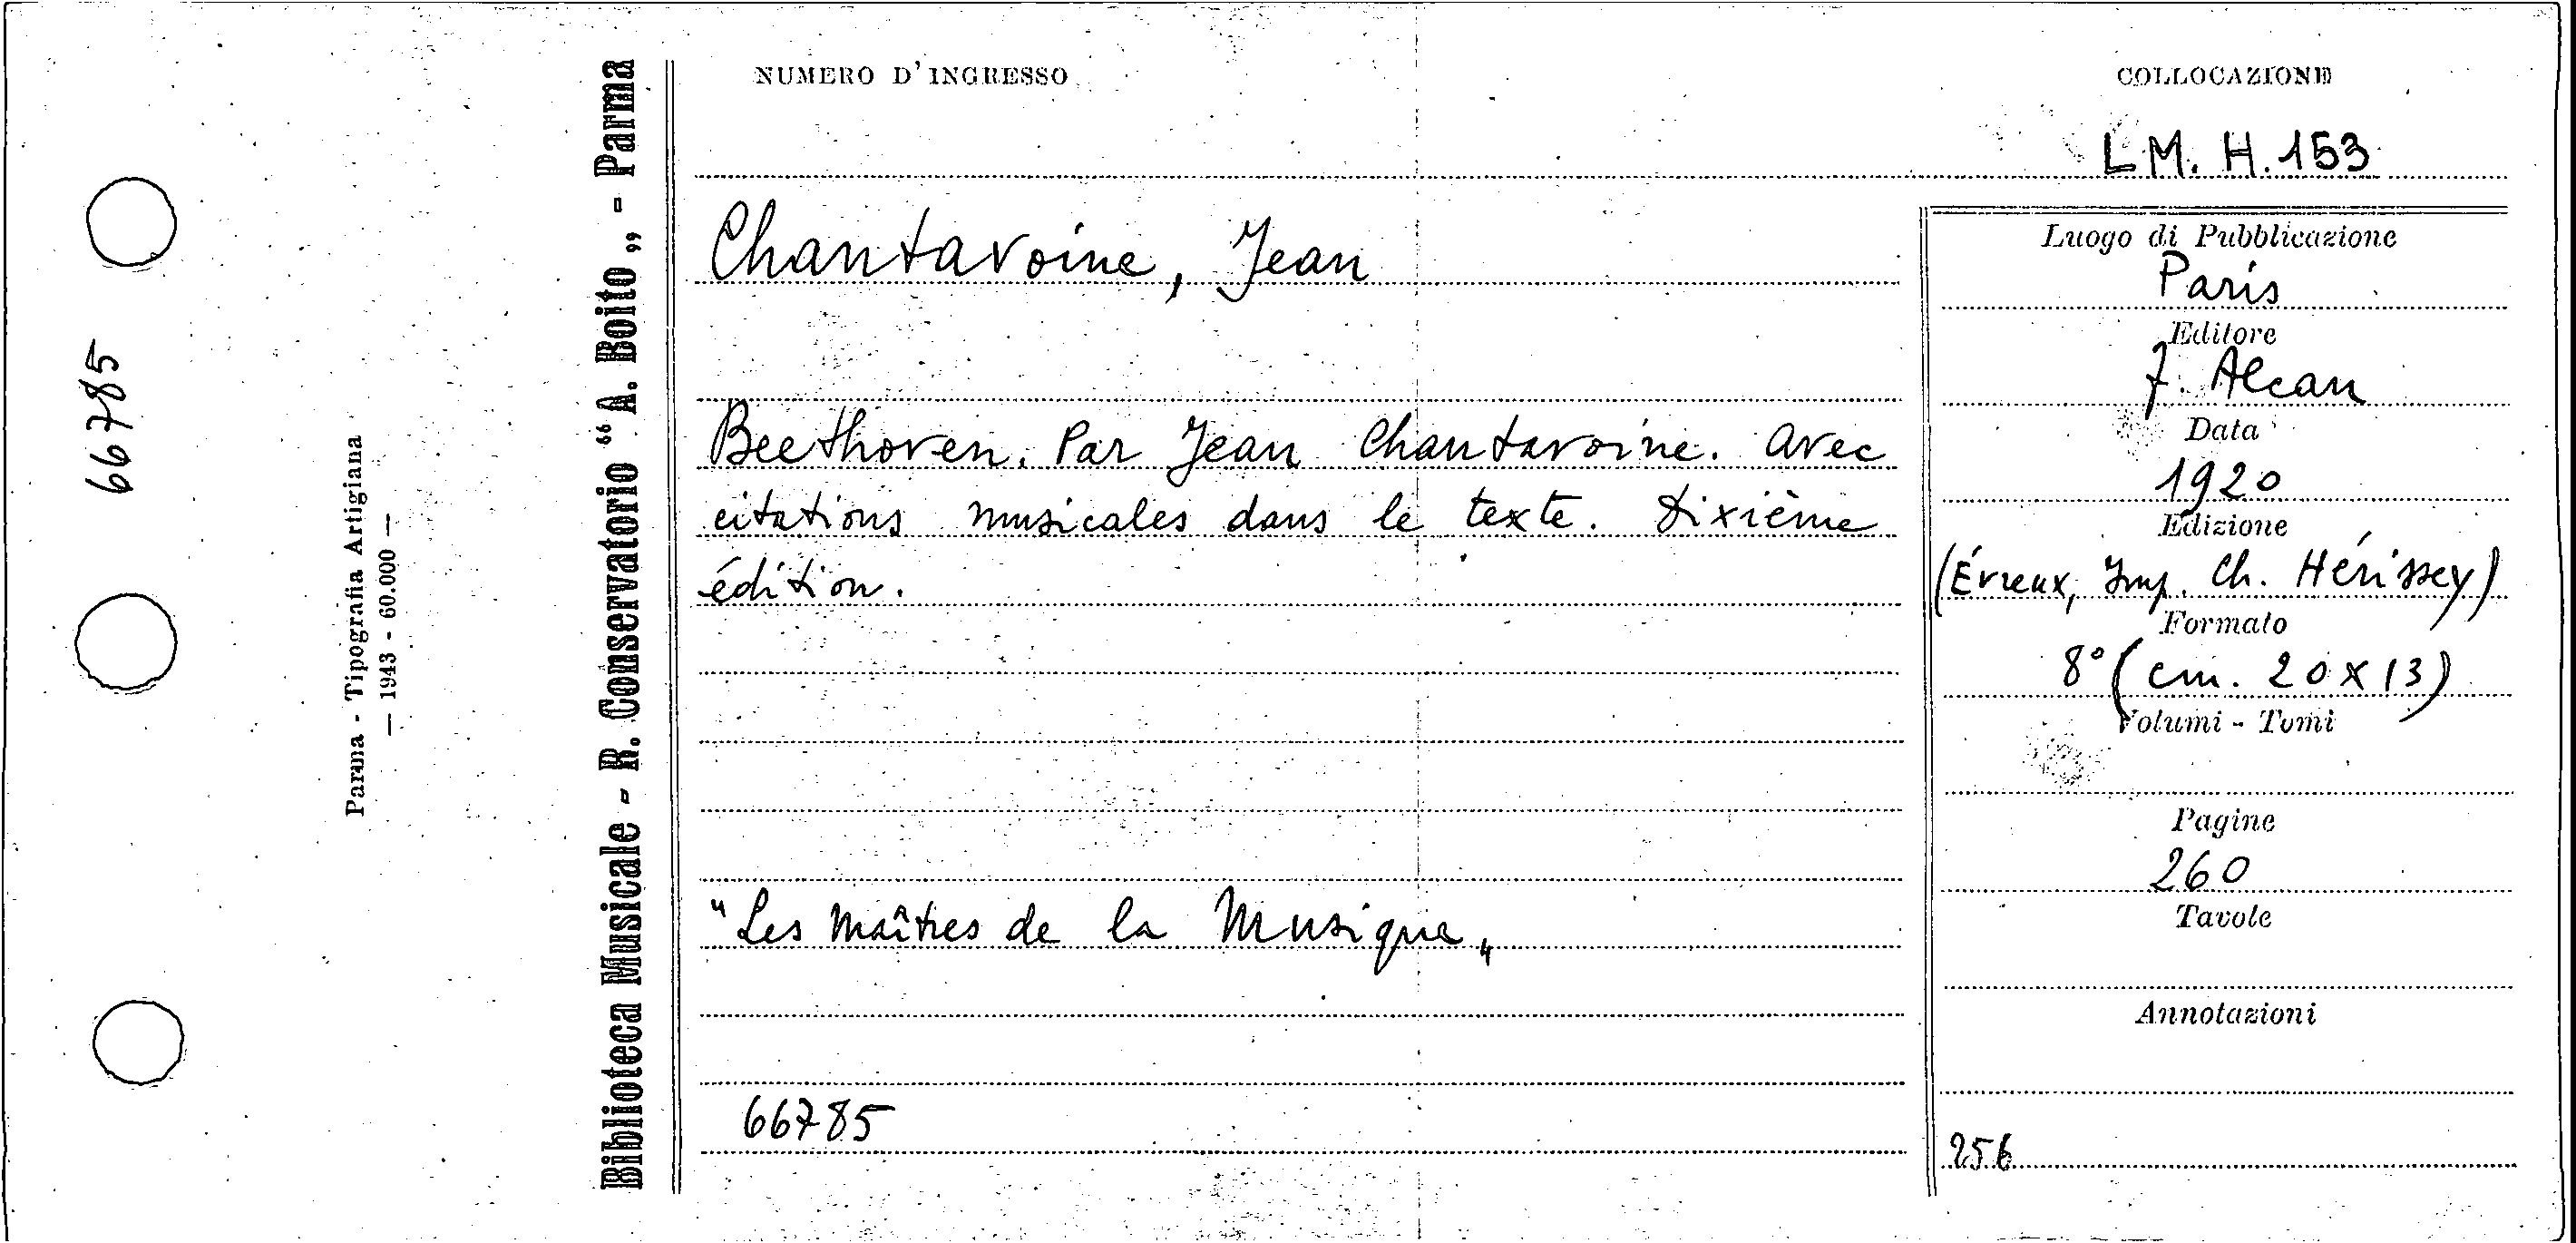 66785
Parma - Tipografia Artigiana
— 1943 - 60.000 —
Biblioteca Musicale - R. Conservatorio “A. Boito„ - Parma
NUMERO D'INGRESSO
COLLOCAZIONE
LM. H. 153
Chantavoine, Jean
Beethoven. Par Jean Chantavoine. Avec
citations musicales dans le texte. Dixième
édition.
"Les Maîtres de la Musique„
66785
Luogo di Pubblicazione
Paris
Editore
F. Alcan
Data
1920
Edizione
(Évreux, Imp. Ch. Hérissey)
Formato
8° (cm. 20 x 13)
Volumi - Tomi
Pagine
260
Tavole
Annotazioni
256